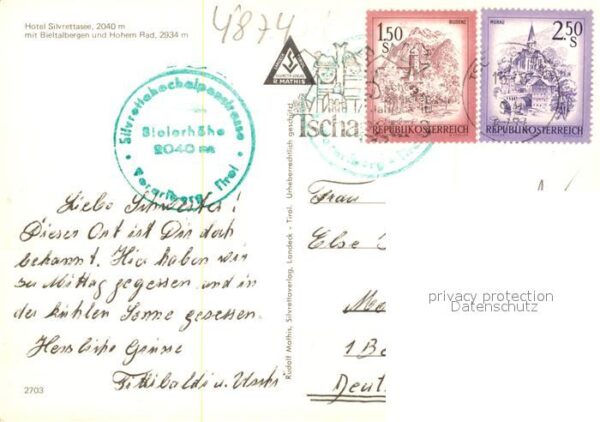 Hotel Silvrettasee, 2040 m
mit Bieltalbergen und Hohem Rad, 2934 m
4874
R. MATHIS
Silvrettahochalpenstrasse
Bielerhöhe
2040 m
Vorarlberg - Tirol
Tschagguns
BLUDENZ
1.50 S
REPUBLIK ÖSTERREICH
MURAU
2.50 S
REPUBLIK ÖSTERREICH
Liebe Schwester!
Dieser Ort ist Dir doch
bekannt. Hier haben wir
zu Mittag gegessen und in
der kühlen Sonne gesessen.
Herzliche Grüsse
u.
2703
Rudolf Mathis, Silvrettaverlag, Landeck - Tirol. Urheberrechtlich geschützt
Frau
Else
1 Be
Deut
privacy protection
Datenschutz